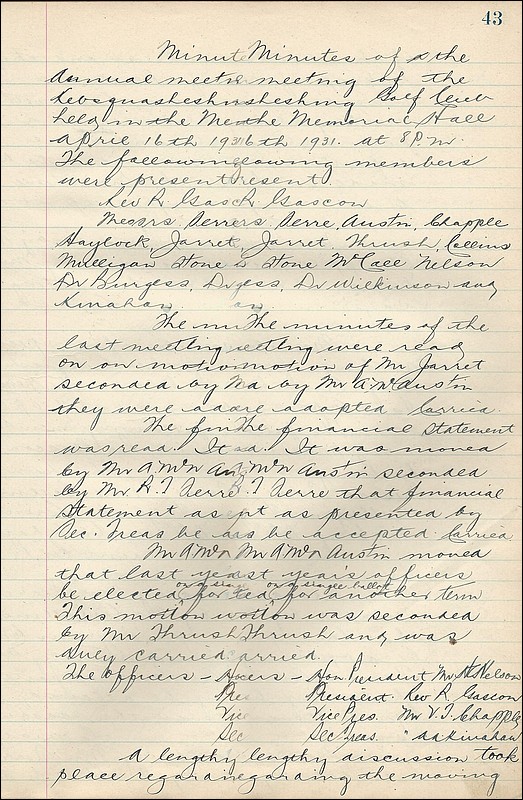 43
Minute Minutes of the
Annual meet meeting of the
Golf Club
held in the Me the Memorial Hall
April 16th 193 16th 1931. at 8 P.m.
The following lowing members
were present resent.
Rev R Gasc R Gascon
Messrs Serre rs, Serre, Austin, Chapple
Haylock, Jarret, Jarret, Thrush, Collins
Mulligan Stone Stone McCall Nelson
Dr Burgess, D gess, Dr Wilkinson and
Kinahan, an
The m The minutes of the
last meeting eeting were read
on on motion motion of Mr Jarret
seconded by M d by Mr A. Mc Austin
they were ad are adopted Carried.
The fin The financial statement
was read. It ad. It was moved
by Mr A. McN Au McN Austin seconded
by Mr R. J Serre J Serre that financial
statement as nt as presented by
Sec. Treas be as be accepted Carried
Mr A McN Mr A McN Austin moved
that last yea st year's officers
on a single on a single ballot
be elected for ted for another term
This motion otion was seconded
by Mr Thrush Thrush and was
duly carried arried.
The officers - icers - Hon. President Mr Nelson
Pres President. Rev R Gascon
Vice Vice Pres. Mr V. J. Chapple
Sec Sec Treas. " AA Kinahan
A lengthy lengthy discussion took
place regardin egarding the moving